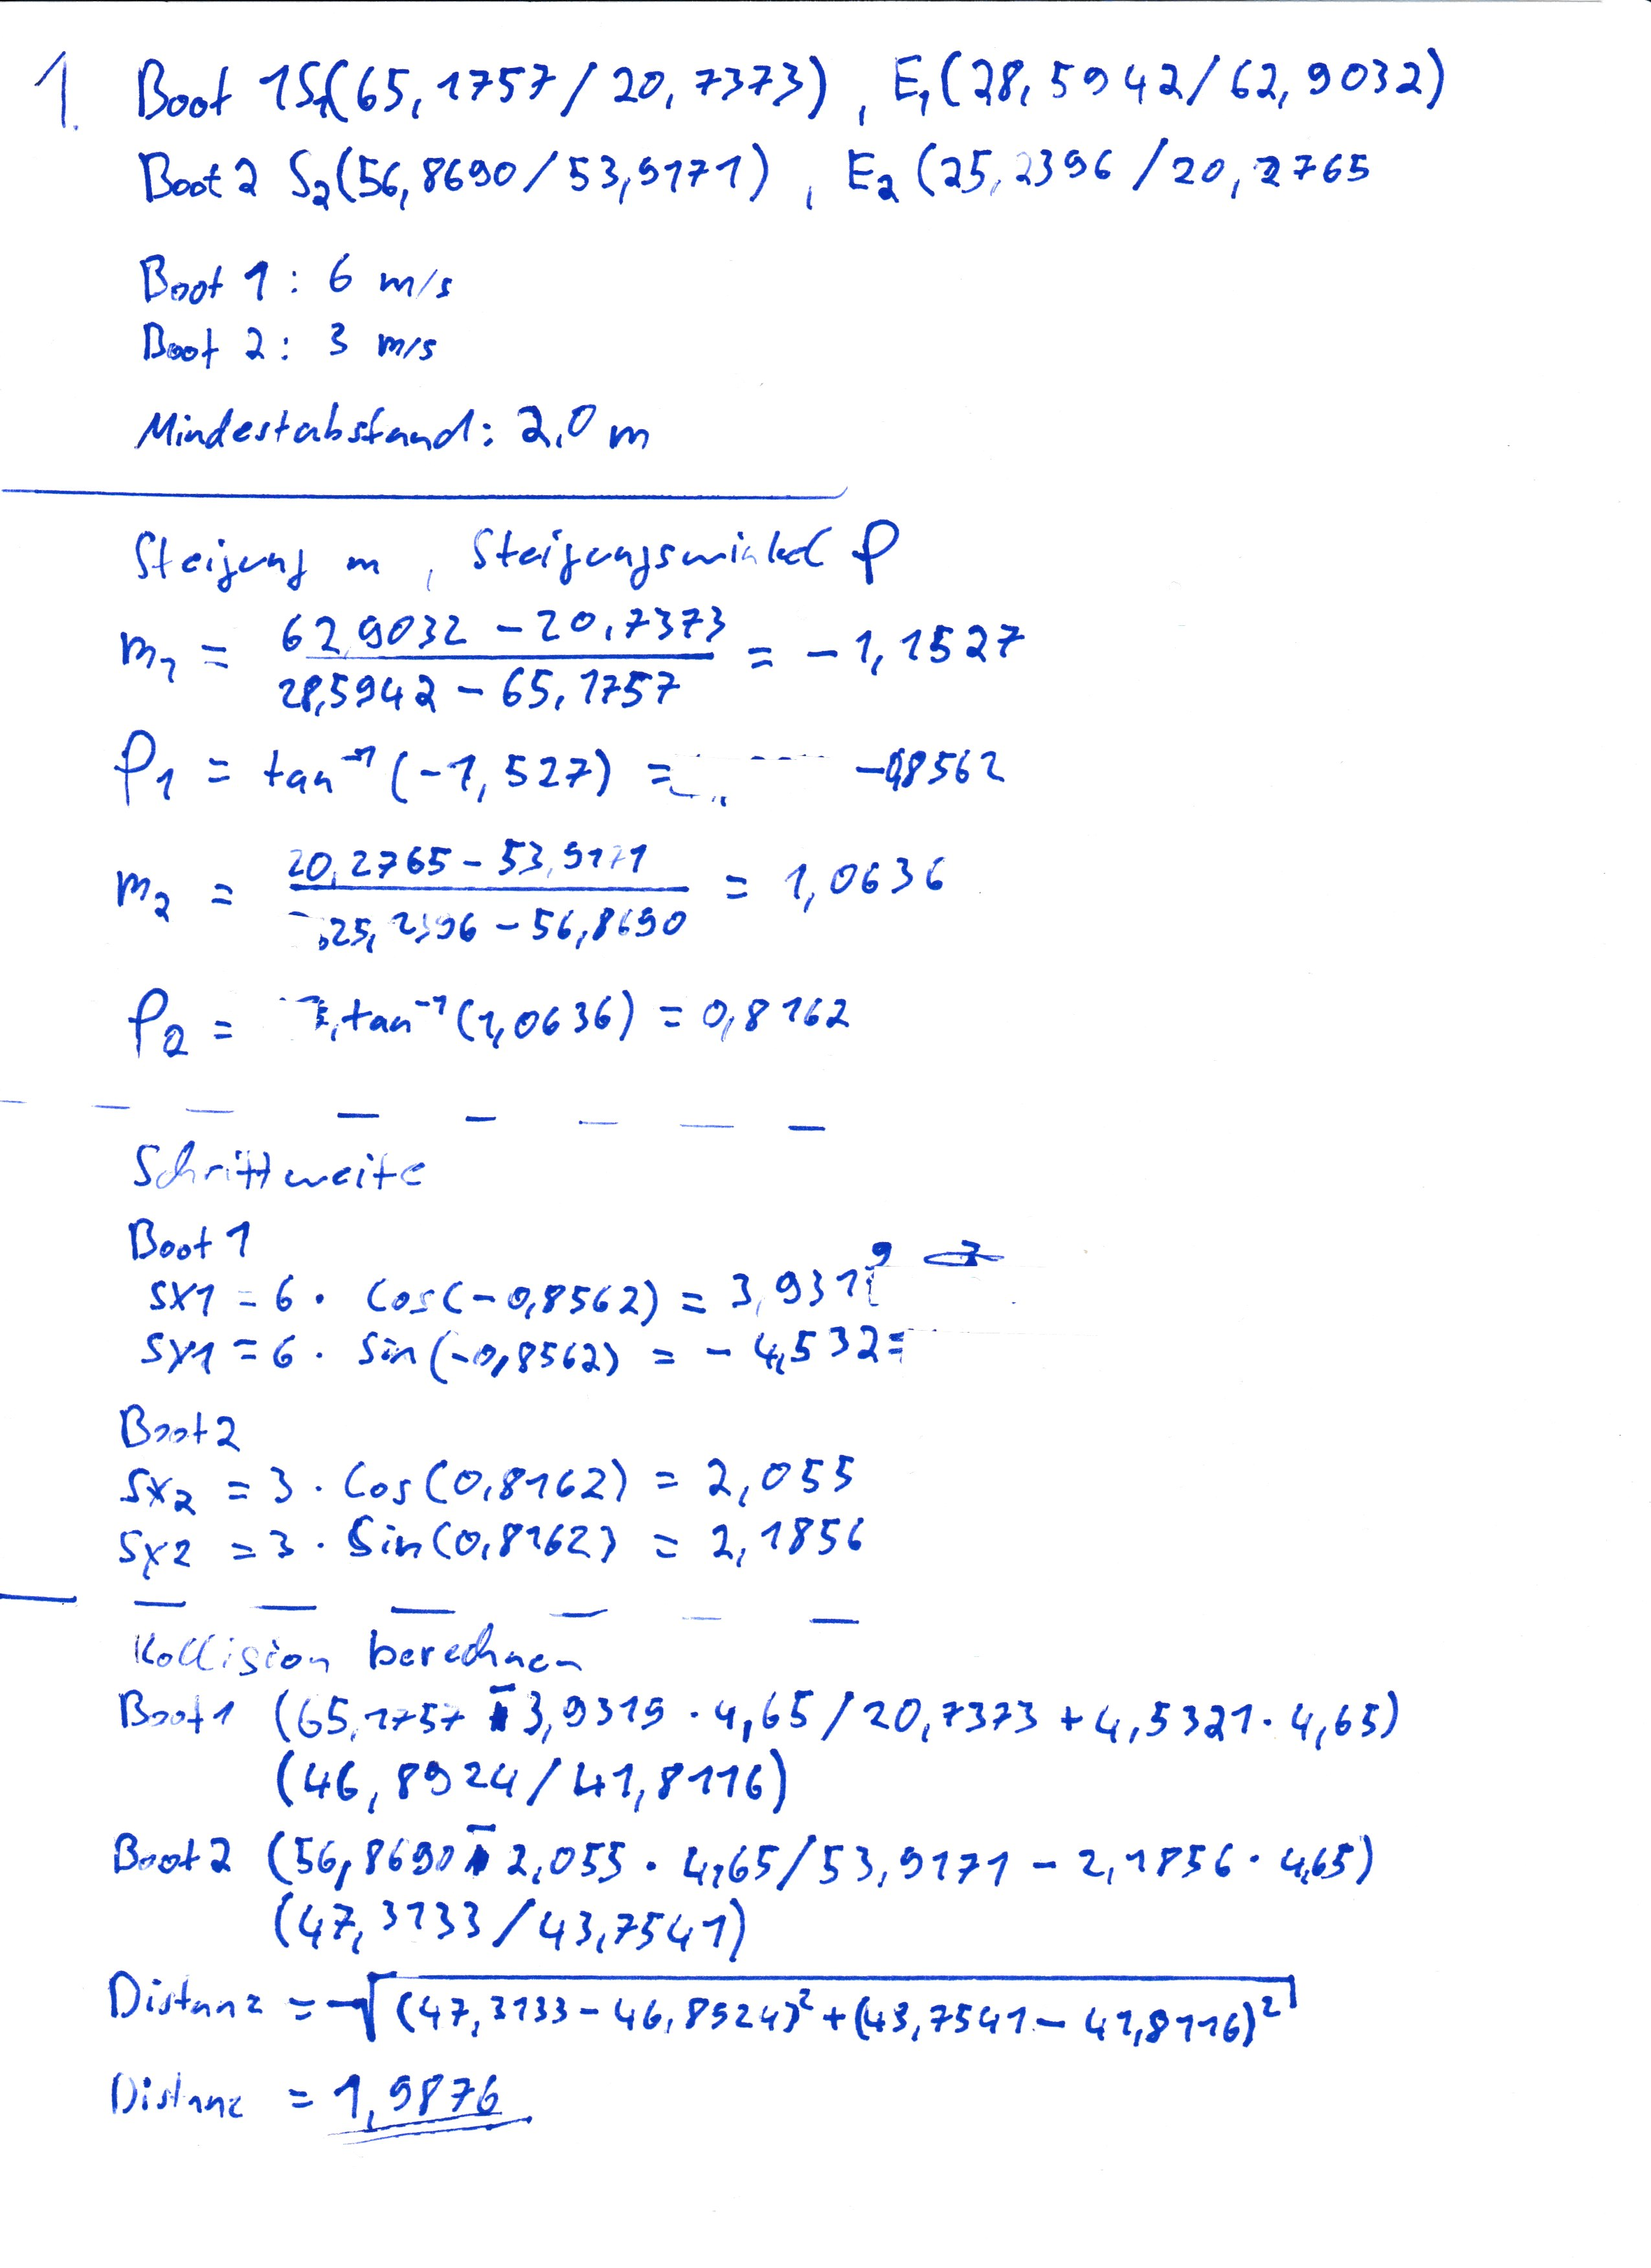 1. Boot 1 S1(65,1757/20,7373) , E1(28,5942/62,9032)
Boot 2 S2(56,8690/53,9171) , E2(25,2396/20,2765
Boot 1: 6 m/s
Boot 2: 3 m/s
Mindestabstand: 2,0 m
Steigung m , Steigungswinkel φ
m1 = (62,9032 - 20,7373)/(28,5942 - 65,1757) = -1,1527
φ1 = tan⁻¹(-1,527) = -0,8562
m2 = (20,2765 - 53,9171)/(25,2396 - 56,8690) = 1,0636
φ2 = tan⁻¹(1,0636) = 0,8162
Schrittweite
Boot 1
sx1 = 6 · cos(-0,8562) = 3,9319
sy1 = 6 · sin(-0,8562) = -4,532
Boot 2
sx2 = 3 · cos(0,8162) = 2,055
sy2 = 3 · sin(0,8162) = 2,1856
Kollision berechnen
Boot 1 (65,1757 - 3,9319 · 4,65/20,7373 + 4,5321 · 4,65)
(46,8924/41,8116)
Boot 2 (56,8690 - 2,055 · 4,65/53,9171 - 2,1856 · 4,65)
(47,3133/43,7541)
Distanz = √((47,3133 - 46,8924)² + (43,7541 - 41,8116)²)
Distanz = 1,9876